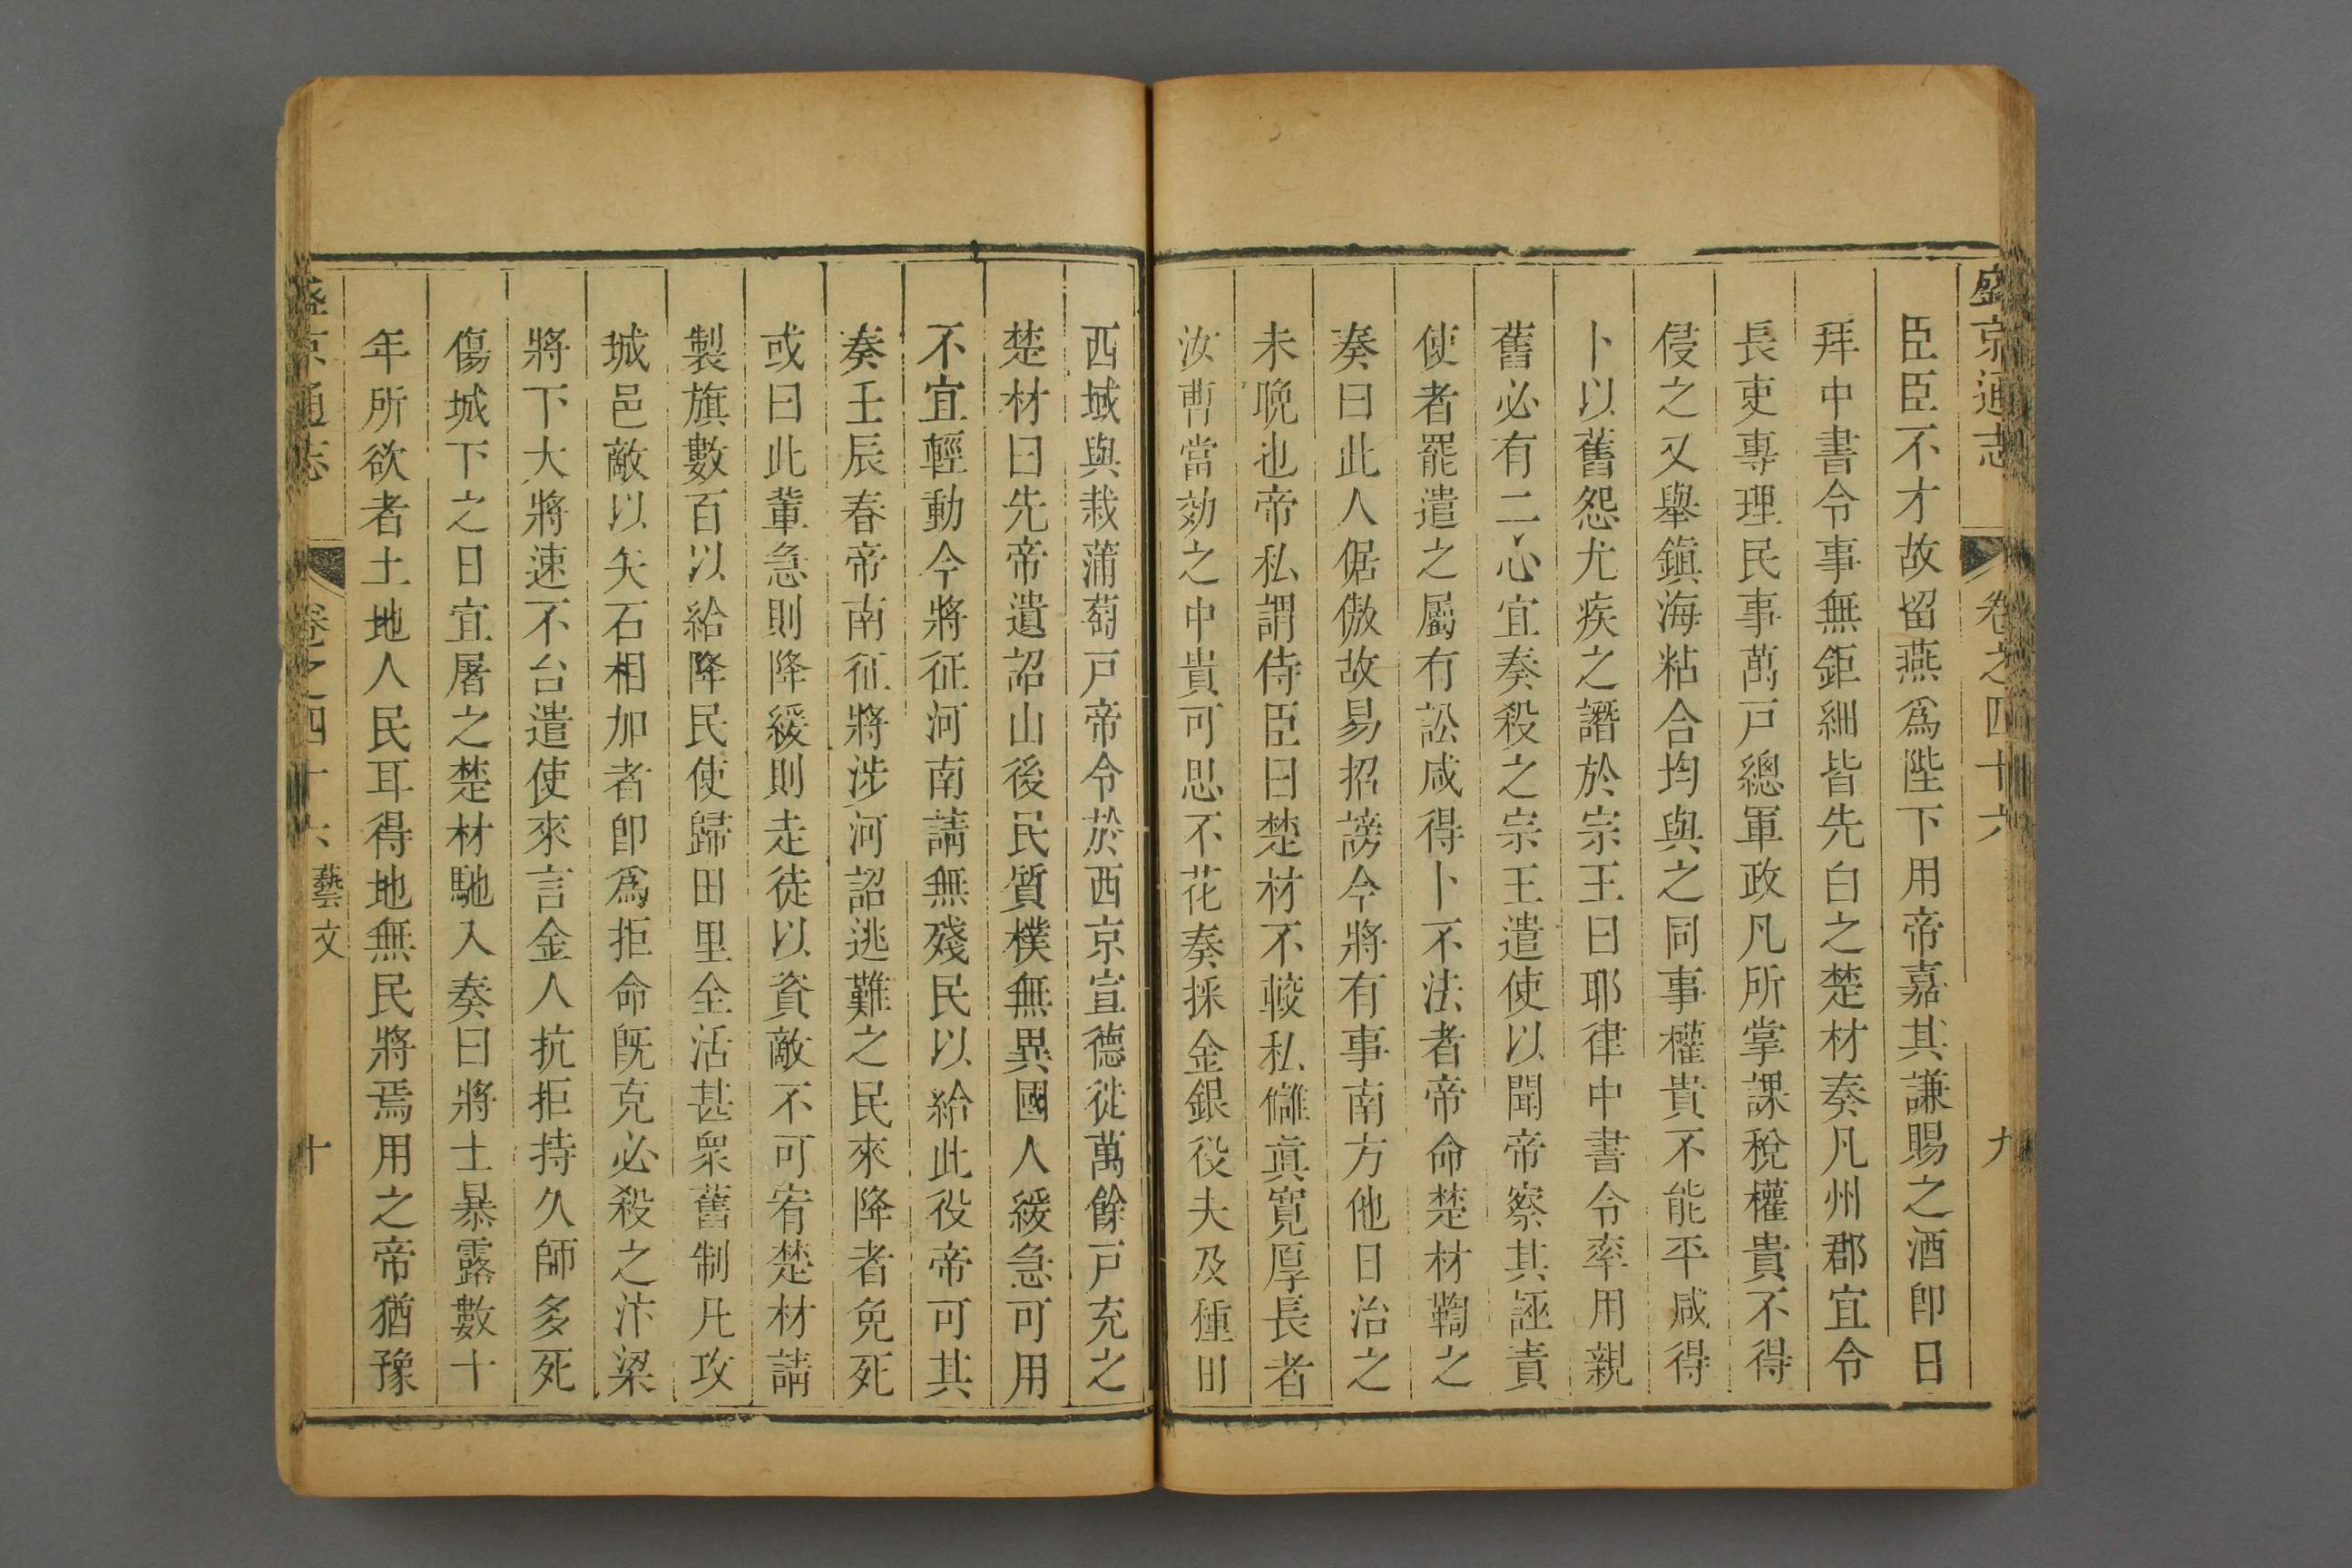 盛京通志 卷之四十六 九
臣臣不才故留燕爲陛下用帝嘉其謙賜之酒卽日
拜中書令事無鉅細皆先白之楚材奏凡州郡宜令
長吏專理民事萬戸總軍政凡所掌課稅權貴不得
侵之又舉鎭海粘合均與之同事權貴不能平咸得
卜以舊怨尤疾之譖於宗王曰耶律中書令率用親
舊必有二心宜奏殺之宗王遣使以聞帝察其誣責
使者罷遣之屬有訟咸得卜不法者帝命楚材鞫之
奏曰此人倨傲故易招謗今將有事南方他日治之
未晩也帝私謂侍臣曰楚材不較私讎眞寛厚長者
汝曹當効之中貴可思不花奏採金銀役夫及種田
西域與栽蒲萄戸帝令於西京宣德徙萬餘戸充之
楚材曰先帝遺詔山後民質樸無異國人緩急可用
不宜輕動今將征河南請無殘民以給此役帝可其
奏壬辰春帝南征將涉河詔逃難之民來降者免死
或曰此軰急則降緩則走徒以資敵不可宥楚材請
製旗數百以給降民使歸田里全活甚衆舊制凡攻
城邑敵以矢石相加者卽爲拒命旣克必殺之汴梁
將下大將速不台遣使來言金人抗拒持久師多死
傷城下之日宜屠之楚材馳入奏曰將士暴露數十
年所欲者土地人民耳得地無民將焉用之帝猶豫
盛京通志 卷之四十六 藝文 十